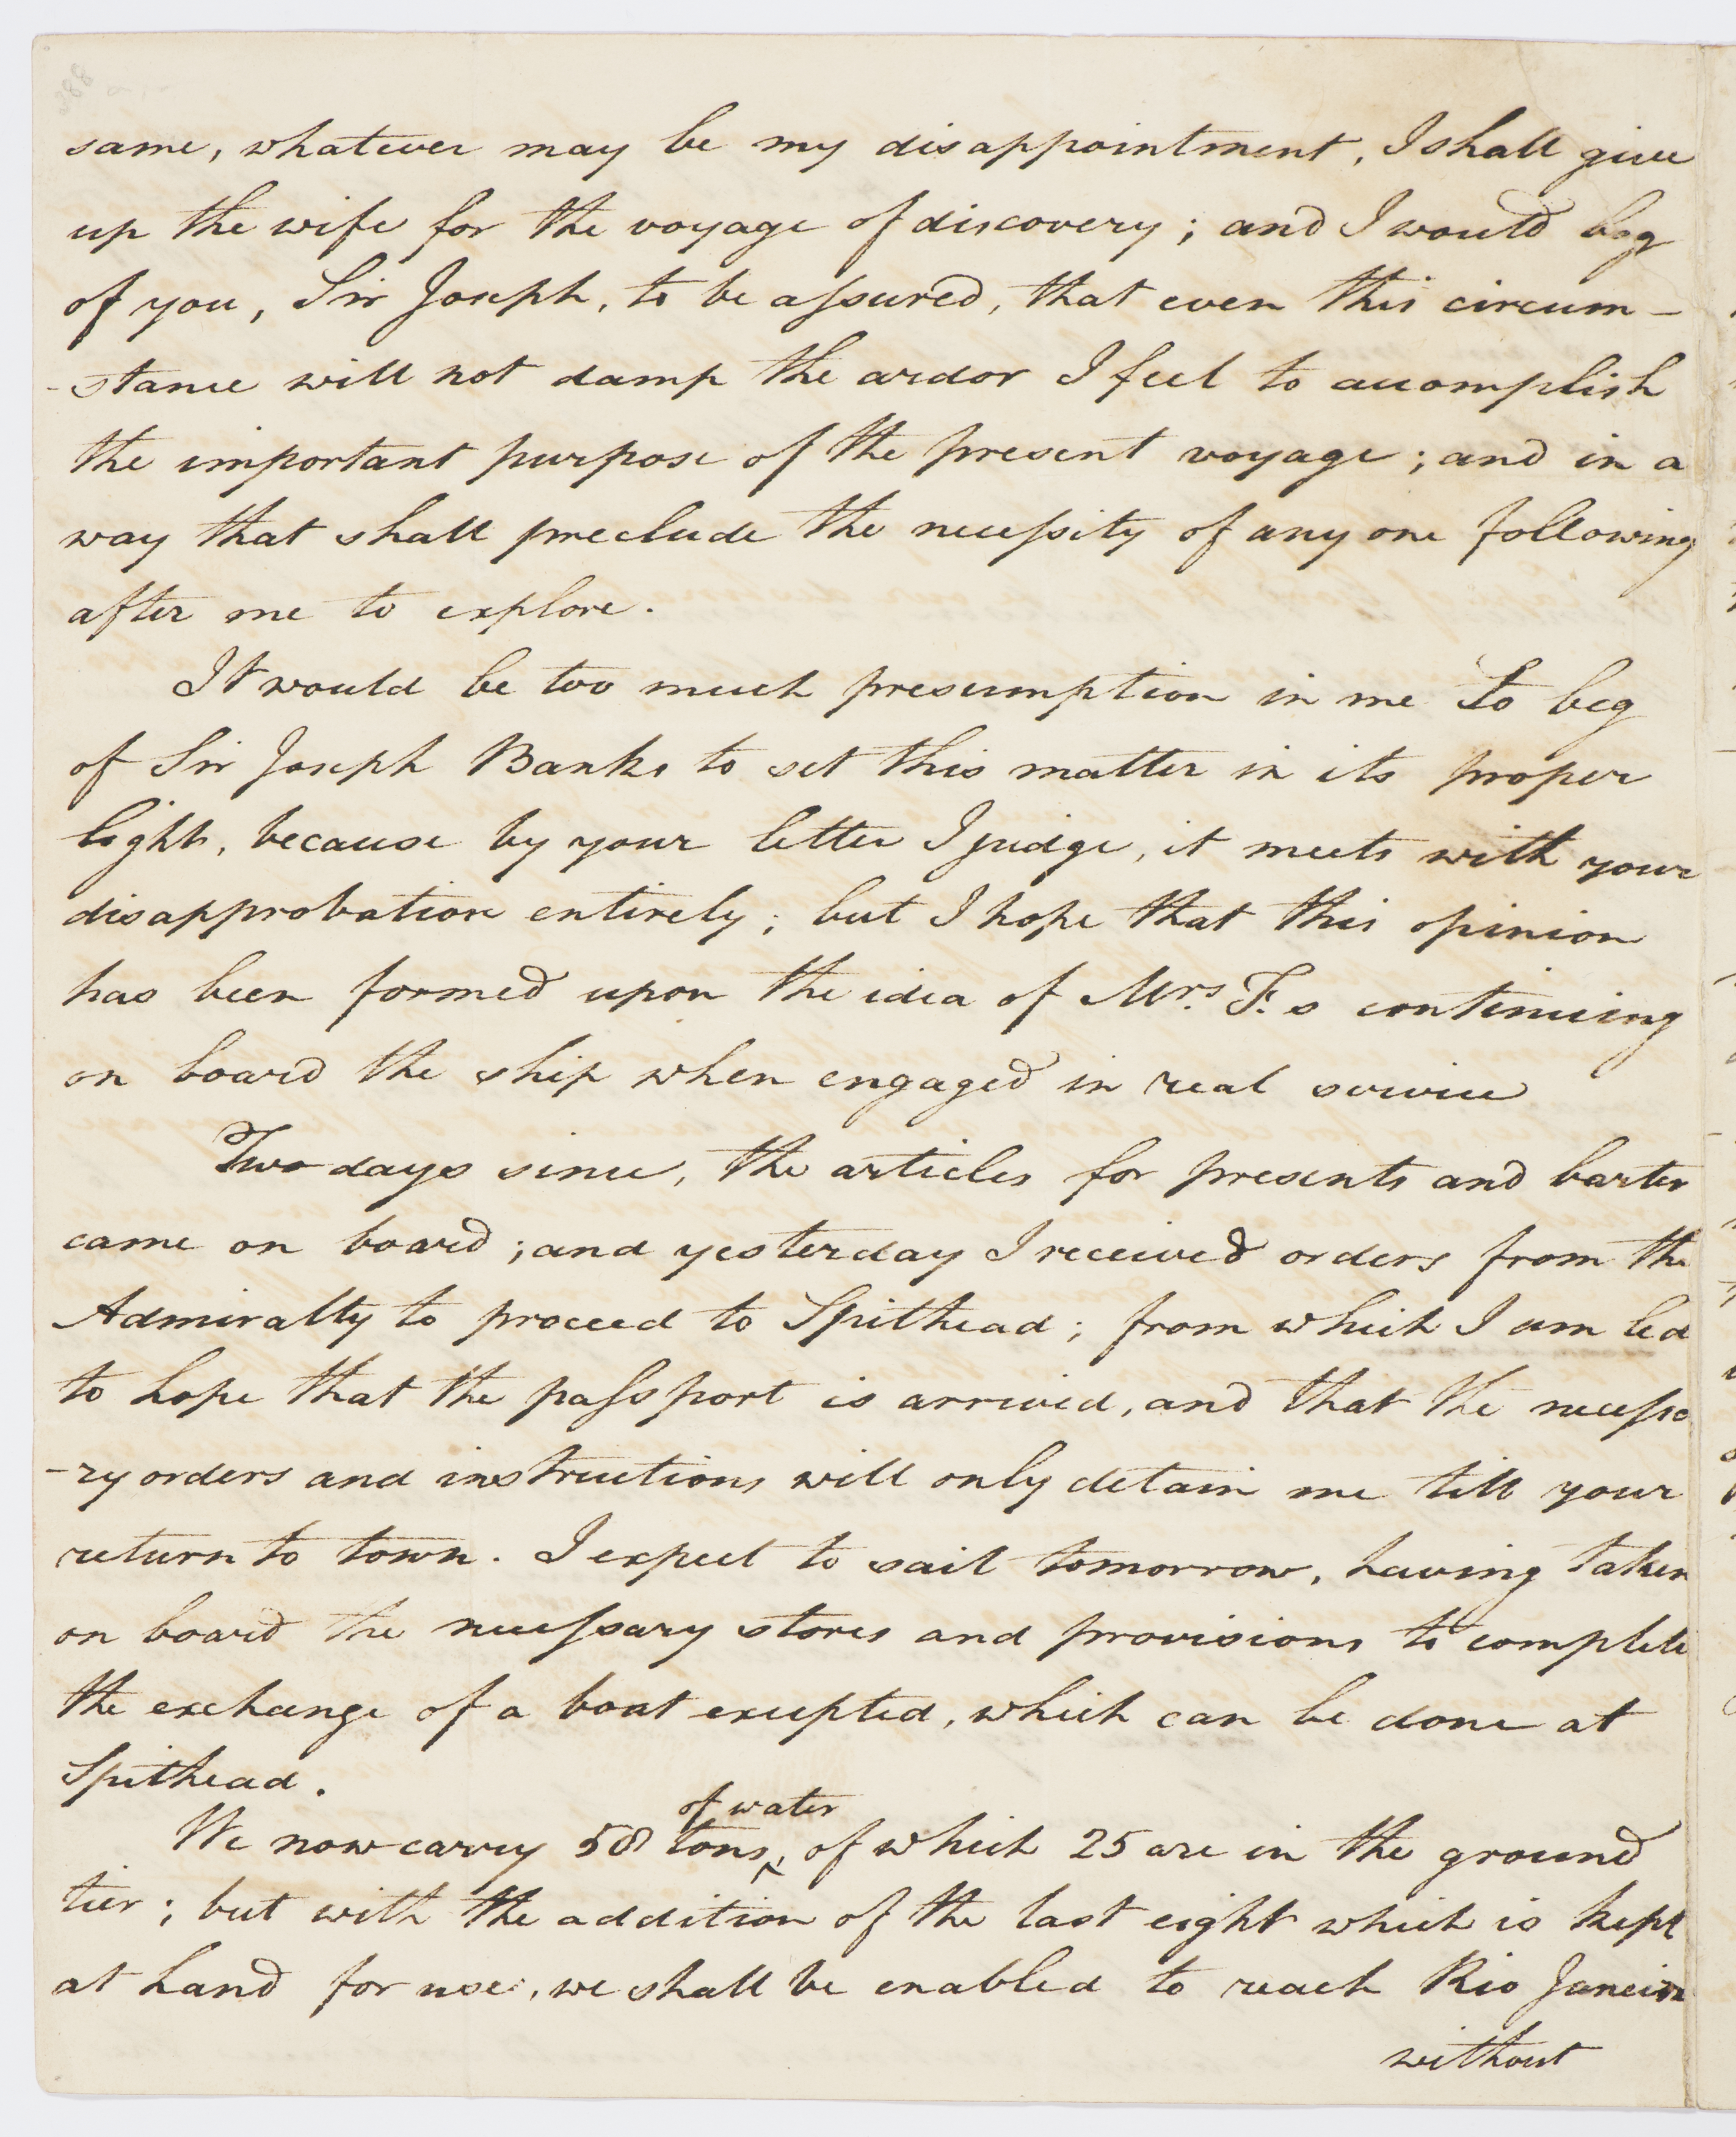 same, whatever may be my disappointment, I shall give
up the wife for the voyage of discovery; and I would beg
of you, Sir Joseph, to be assured, that even this circum-
-stance will not damp the ardor I feel to accomplish
the important purpose of the present voyage; and in a
way that shall preclude the necessity of any one following
after me to explore.
It would be too much presumption in me to beg
of Sir Joseph Banks to set this matter in its proper
light, because by your letter I judge, it meets with your
disapprobation entirely; but I hope that this opinion
has been formed upon the idea of Mrs. F.s continuing
on board the ship when engaged in real service
Two days since, the articles for presents and barter
came on board; and yesterday I received orders from the
Admiralty to proceed to Spithead; from which I am led
to hope that the passport is arrived, and that the necessa
-ry orders and instructions will only detain me till your
return to town. I expect to sail tomorrow, having taken
on board the necessary stores and provisions to complete
the exchange of a boat excepted, which can be done at
Spithead.
We now carry 58 tons of water, of which 25 are in the ground
tier; but with the addition of the last eight which is kept
at hand for use, we shall be enabled to reach Rio Janeiro
without